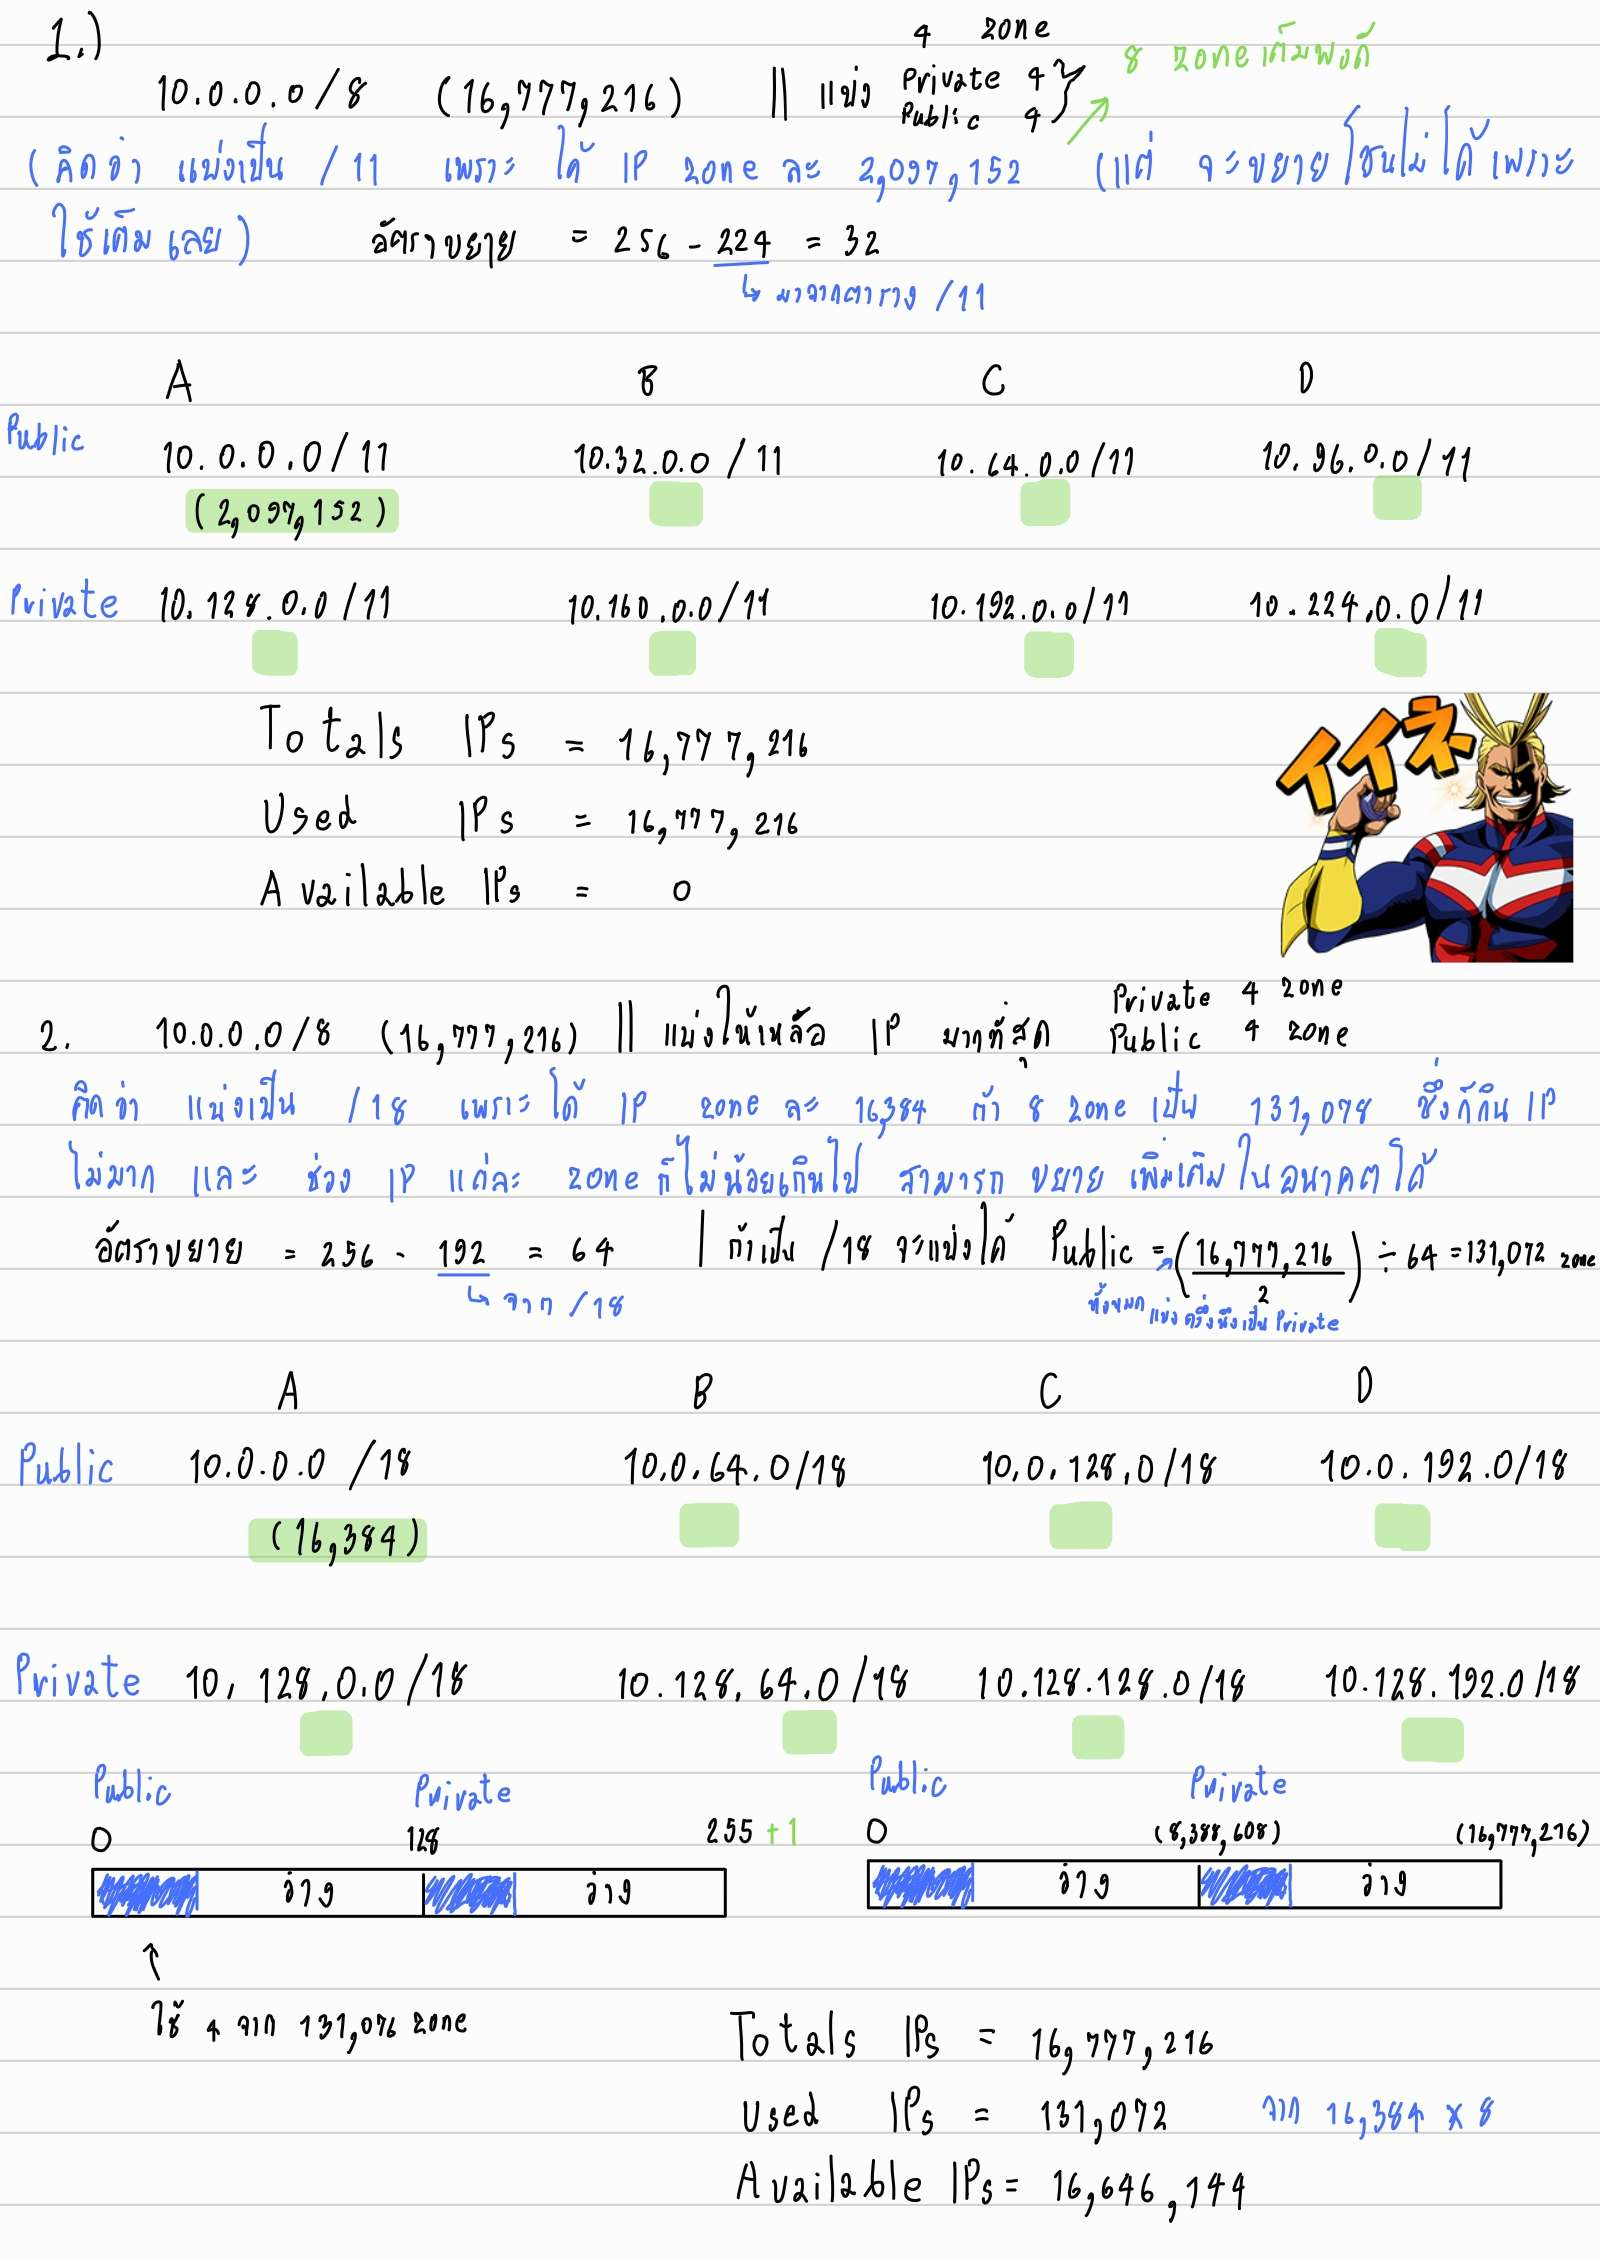 1.)
4 zone
10.0.0.0/8 (16,777,216) || แบ่ง Private 4
Public 4
8 zone เต็มพอดี
(คิดว่า แบ่งเป็น /11 เพราะ ได้ IP zone ละ 2,097,152 (แต่ จะขยายโซนไม่ได้เพราะ
ใช้เต็มเลย) อัตราขยาย = 256 - 224 = 32
↳ มาจากตาราง /11
A B C D
Public 10.0.0.0/11 10.32.0.0/11 10.64.0.0/11 10.96.0.0/11
(2,097,152)
Private 10.128.0.0/11 10.160.0.0/11 10.192.0.0/11 10.224.0.0/11
Totals IPs = 16,777,216
Used IPs = 16,777,216
Available IPs = 0
イイネ
2. 10.0.0.0/8 (16,777,216) || แบ่งให้เหลือ IP มากที่สุด Private 4 zone
Public 4 zone
คิดว่า แบ่งเป็น /18 เพราะได้ IP zone ละ 16,384 ถ้า 8 zone เป็น 131,078 ซึ่งก็กิน IP
ไม่มาก และ ช่วง IP แต่ละ zone ก็ไม่น้อยเกินไป สามารถ ขยาย เพิ่มเติม ใน อนาคตได้
อัตราขยาย = 256 - 192 = 64 | ถ้าเป็น /18 จะแบ่งได้ Public = (16,777,216 / 2) ÷ 64 = 131,072 zone
↳ จาก /18
ทั้งหมด แบ่งครึ่งนึงเป็น Private
A B C D
Public 10.0.0.0/18 10.0.64.0/18 10.0.128.0/18 10.0.192.0/18
(16,384)
Private 10.128.0.0/18 10.128.64.0/18 10.128.128.0/18 10.128.192.0/18
Public Private Public Private
0 128 255 +1 0 (8,388,608) (16,777,216)
ว่าง ว่าง ว่าง ว่าง
↑
ใช้ 4 จาก 131,076 zone
Totals IPs = 16,777,216
Used IPs = 131,072 จาก 16,384 x 8
Available IPs = 16,646,144